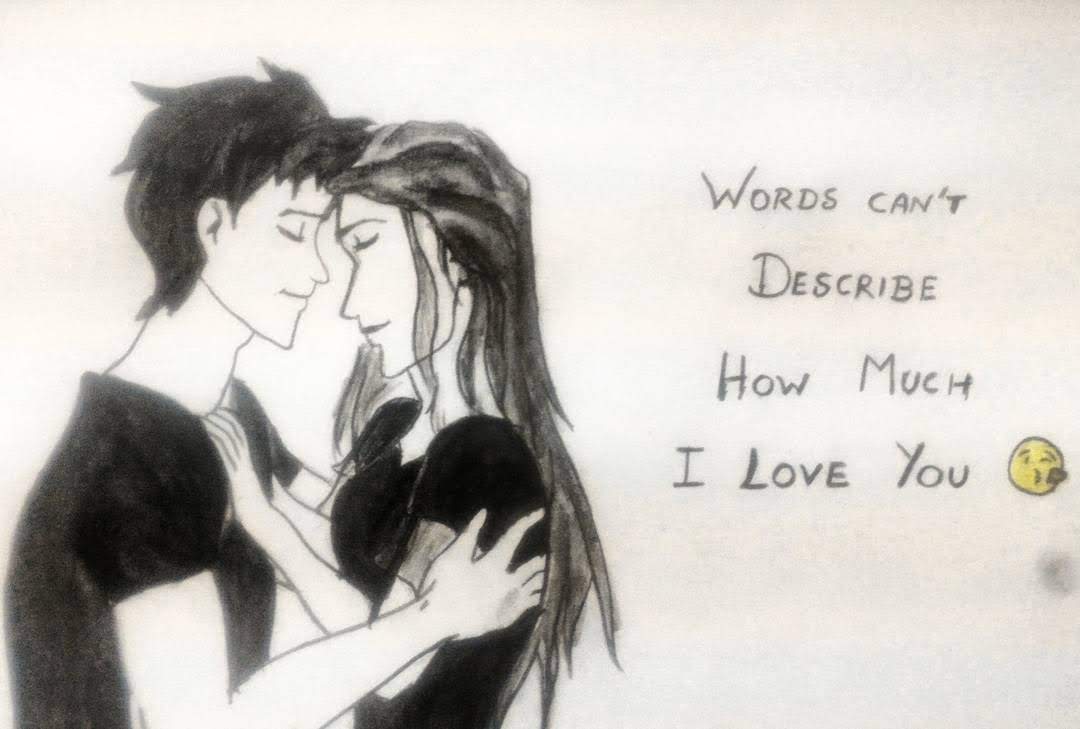 WORDS CAN'T
DESCRIBE
HOW MUCH
I LOVE YOU 😘